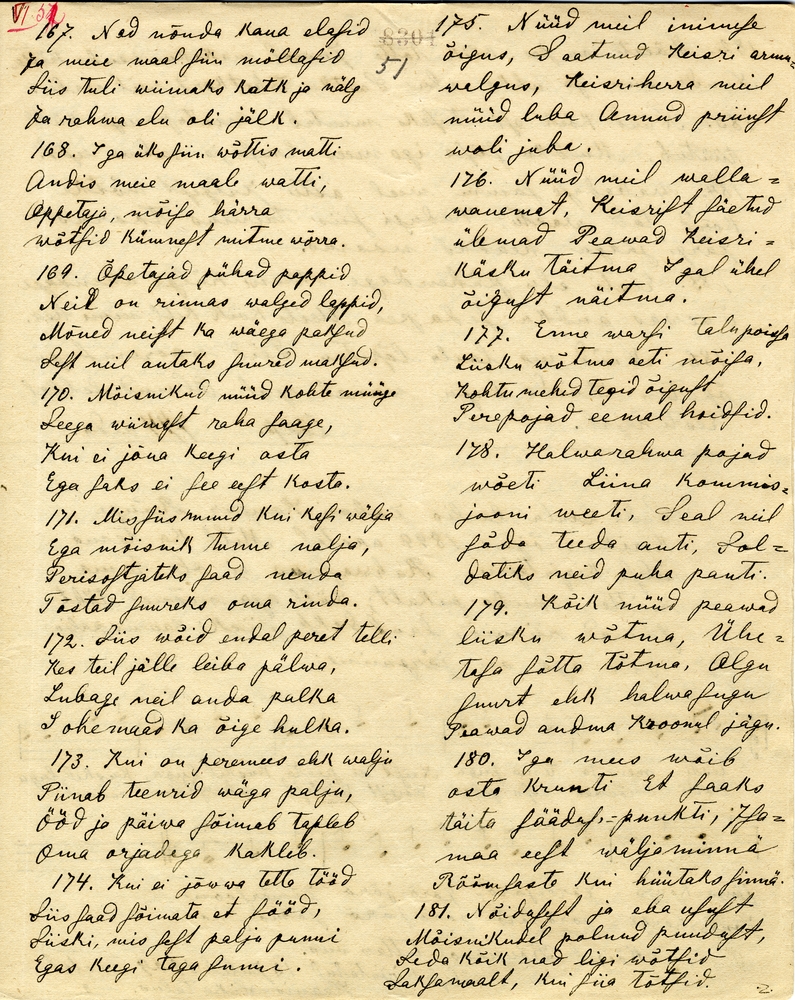 VI. 51
8304
51
167. Ned nõnda kaua elasid
Ja meie maal siin möllasid
Siis tuli wiimaks katk ja nälg
Ja rahwa elu oli jälk.
168. Iga üks siin wõttis matti
Andis meie maale watti,
Õppetaja, mõisa härra
wõtsid kümnest mitme wõrra.
169. Õpetajad pühad pappid
Neil on rinnas walged lappid,
Mõned neist ka wäega paksud
Sest neil antaks suured maksud.
170. Mõisnikud nüüd kohte müüge
Seega wiimast raha saage,
Kui ei jõua keegi osta
Ega saks ei see eest kosta.
171. Mis siis muud kui kasi wälja
Ega mõisnik tunne nalja,
Perisostjateks saad nenda
Tõstad suureks oma rinda.
172. Siis wõid endal peret telli
Kes teil jälle leiba pälwa,
Lubage neil anda palka
Iohemaad ka õige hulka.
173. Kui on peremees ehk walju
Piinab teenrid wäga palju,
Ööd ja päiwa sõimab tapleb
Oma orjadega kakleb.
174. Kui ei jõwwa tetta tööd
Siis saad sõimata et sööd,
Siiski, mis sest palju punni
Egas keegi taga sunni.
175. Nüüd meil inimese
õigus, Saatnud Keisri armu-
walgus, Keisriherra meil
nüüd luba Annud priiust
woli juba.
176. Nüüd meil walla=
wanemat, Keisrist säetud
ülemad Peawad Keisri=
käsku täitma Igal ühel
õigust näitma.
177. Enne warsi talupoisa
Liisku wõtma aeti mõisa,
Kohtumehed tegid õigust
Perepojad eemal hoidsid.
178. Halwarahwa pojad
wõeti Liina kommis=
jooni weeti, Seal neil
sõda teeda anti, Sol=
datiks neid puha panti.
179. Kõik nüüd peawad
liisku wõtma, Ühe=
tasa sõtta tõtma, Olgu
suurt ehk halwa sugu
Peawad andma Kroonul jägu.
180. Iga mees wõib
osta krunti Et saaks
täita säädus=punkti, Isa=
maa eest wäljaminnä
Rõõmsaste kui hüütaks sinnä.
181. Nõidusest ja ebausust
Mõisnikudel polnud puudust,
Seda kõik nad ligi wõtsid
Saksamaalt, kui siia tõtsid.